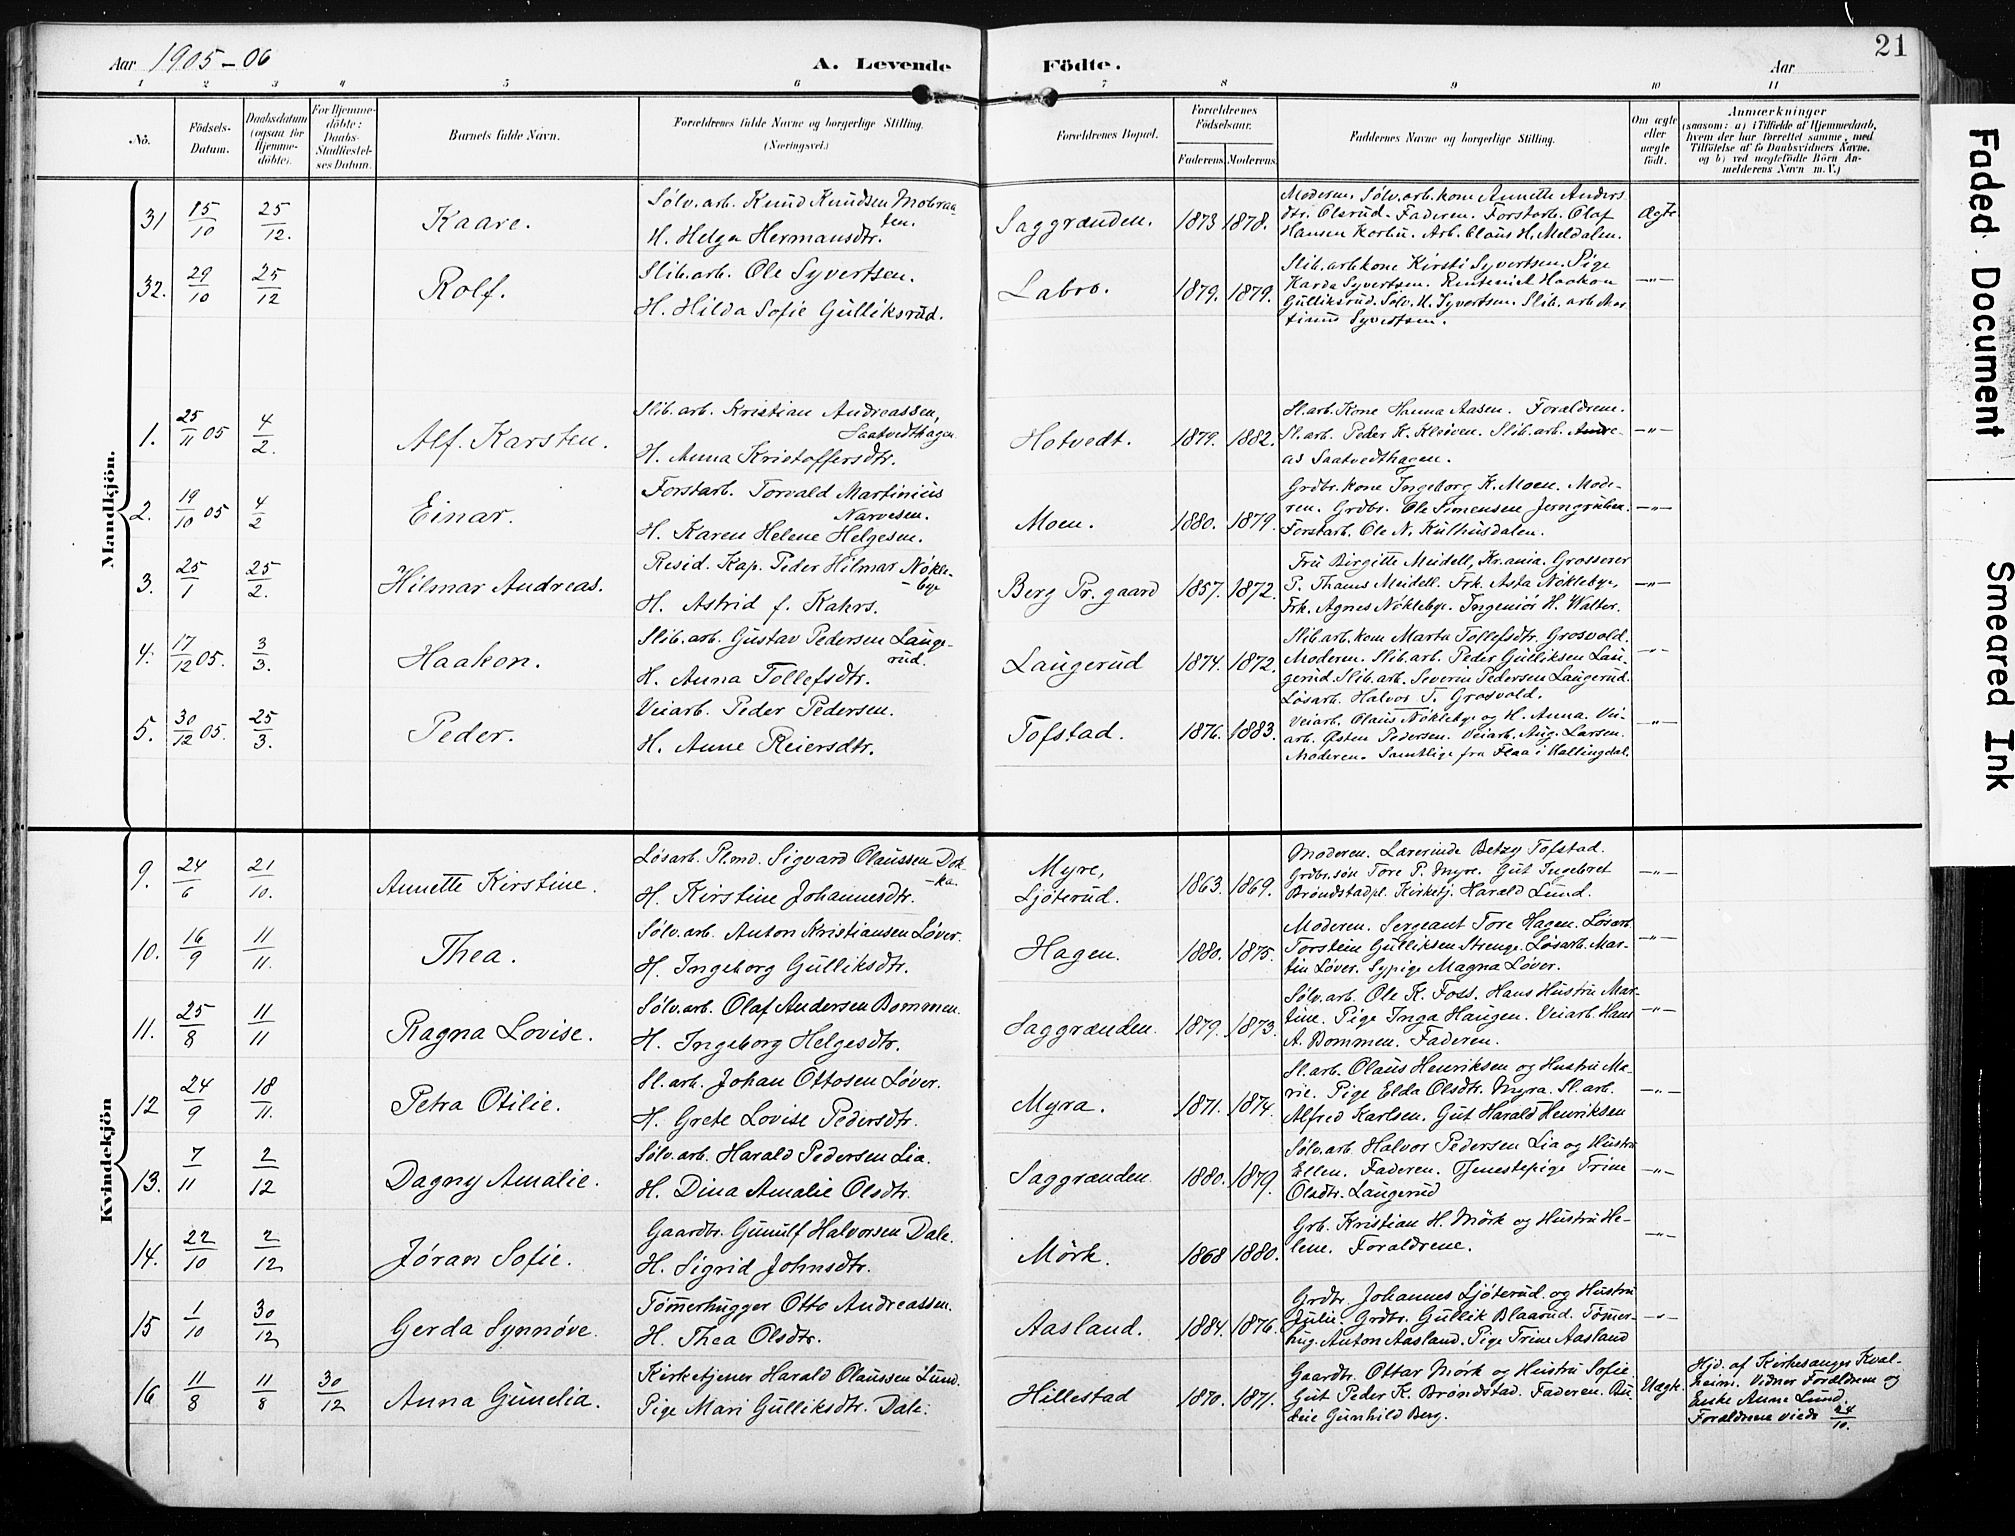 Aar 1905-06
A. Levende Födte.
Aar
21
1 2 3 4 5 6 7 8 9 10 11
No.
Födsels-Datum.
Daabsdatum (ogsaa for Hjemme-döbte).
For Hjemme-döbte: Daabs-Stadfæstel-ses Datum.
Barnets fulde Navn.
Forældrenes fulde Navne og borgerlige Stilling.
(Næringsvei.)
Forældrenes Bopæl.
Forældrenes Födselsaar.
Faderens. Moderens.
Faddernes Navne og borgerlige Stilling.
Om ægte eller uægte født.
Anmærkninger
(saasom: a) i Tilfælde af Hjemmedaab,
hvem der har forrettet samme, med
Tilföielse af to Daabsvidners Navne.
og b) ved uægtefödte Börn An-
melderens Navn m. V.)
Mandkjön.
31 15/10 25/12. Kaare. Sølv.arb. Knud Knudsen Mobraa-
den.
H. Helga Hermansdtr. Saggrænden. 1873 1878. Moderen. Sølv.arb.kone Annette Anders
dtr. Olsrud. Faderen. Forstarb. Olaf
Hansen Korbu. Arb. Claus H. Meldalen. Ægte
32. 29/10 25/12 Rolf. Slib.arb. Ole Syvertsen.
H. Hilda Sofie Gulliksrud. Labro. 1879. 1879. Slib.arbkone Kirsti Syvertsen. Pige
Karda Syvertsen. Rentenist Haakon
Gulliksrud. Sølv. H. Syvertsen. Slib. arb Mar-
tinus Syvertsen. -"-
1. 25/11 05 4/2. Alf. Karsten. Slib.arb. Kristian Andreassen,
Saatvedthagen
H. Anna Kristoffersdtr. Hotvedt. 1879. 1882. Sl.arb. Kone Hanna Aasen. Forældrene.
Sl.arb. Peder K. Kleiven. Slib.arb. Andre-
as Saatvedthagen. -"-
2. 19/10 05 4/2 Einar. Forstarb. Torvald Martinius
Narvesen.
H. Karen Helene Helgesen. Moen. 1880. 1879. Grdbr. kone Ingeborg K. Moen. Mode-
ren. Grdbr. Ole Simensen Jerngruben.
Forstarb. Ole N. Kulhusdalen. -"-
3. 25/1 25/2. Hilmar Andreas. Resid. Kap. Peder Hilmar Nøkle-
-bye
H. Astrid f. Kahrs. Berg Pr.gaard 1857. 1872. Fru Birgitte Meidell, Kr.ania. Grosserer
T. Thams Meidell. Frk. Asta Nøklebye,
Frk. Agnes Nøklebye. Ingeniør H. Walter. -"-
4. 17/12 05. 3/3. Haakon. Slib.arb. Gustav Pedersen Lauge-
rud.
H. Anna Tollefsdtr. Laugerud 1874. 1872. Slib.arb.kone Marta Tollefsdtr. Grosvold.
Moderen. Slib.arb. Peder Gulliksen Lau-
gerud. Slib.arb. Severin Pedersen Laugerud.
Løsarb. Halvor T. Grosvold. -"-
5. 30/12 05. 25/3. Peder. Veiarb. Peder Pedersen.
H. Anne Reiersdtr. Tofstad. 1876. 1883. Veiarb. Claus Nøklebye og H. Anna. Vei-
arb. Østen Pedersen. Veiarb. Aug. Larsen.
Moderen. Samtlige fra Flaa i Hallingdal. -"-
Kvindekjön
9. 24/6 21/10. Annette Kirstine. Løsarb. Pl.md. Sigvard Olaussen Dok-
-ka.
H. Kirstine Johannesdtr. Myre,
Ljøterud. 1863. 1869. Moderen. Lærerinde Betzy Tofstad.
Grdbr.søn Tore P. Myre. Gut Ingebret
Brøndstadpl. Kirketj. Harald Lund. -"-
10. 16/9 11/11. Thea. Sølv.arb. Anton Kristiansen Løver.
H. Ingeborg Gulliksdtr. Hagen. 1880. 1875. Moderen. Sergeant Tore Hagen. Løsarb.
Torstein Gulliksen Strenge. Løsarb. Mar-
tin Løver. Sypige Magna Løver. -"-
11. 25/8 11/11 Ragna Lovise. Sølv.arb. Olaf Andersen Bommen.
H. Ingeborg Helgesdtr. Saggrænden. 1879. 1873. Sølv.arb. Ole K. Foss. Hans Hustru Mar-
tine. Pige Inga Haugen. Veiarb. Hans
A. Bommen. Faderen. -"-
12 24/9 18/11. Petra Otilie. Sl.arb. Johan Ottosen Løver.
H. Grete Lovise Pedersdtr. Myra. 1871. 1874. Sl.arb. Olaus Henriksen og Hustru Ma-
rie. Pige Elda Olsdtr. Myra. Sl.arb.
Alfred Karlsen. Gut Harald Henriksen -"-
13. 7/11 2/12 Dagny Amalie. Sølv.arb. Harald Pedersen Lia.
H. Dina Amalie Olsdtr. Saggrænden 1880. 1879. Sølv.arb. Halvor Pedersen Lia og Hustru
Ellen. Faderen. Tjenestepige Trine
Olsdtr. Laugerud -"-
14. 22/10 2/12 Jøran Sofie. Gaardbr. Gunulf Halvorsen Dale.
H. Sigrid Johnsdtr. Mörk. 1868 1880. Grb. Kristian H. Mörk og Hustru He-
lene. Forældrene. -"-
15 1/10 30/12 Gerda Synnøve. Tømerhugger Otto Andreassen.
H. Thea Olsdtr. Aasland. 1884. 1876. Grdbr. Johannes Ljøterud og Hustru
Julie. Grdbr. Gullik Blaarud. Tømer-
hug. Anton Aasland. Pige Trine Aasland -"-
16 11/8 11/8 30/12 Anna Gunelia. Kirketjener Harald Olaussen Lund.
Pige Mari Gulliksdtr. Dale. Hillestad 1870. 1871. Gaardbr. Ottar Mörk og Hustru Sofie.
Gut Peder K. Brøndstad. Faderen. Bu-
deie Gunhild Berg. Uægte. Hjd. af Kirkesanger Kval-
heim. Vidner Forældrene og
Enke Anne Lund.
Forældrene viede 24/10.
Faded Document
Smeared Ink